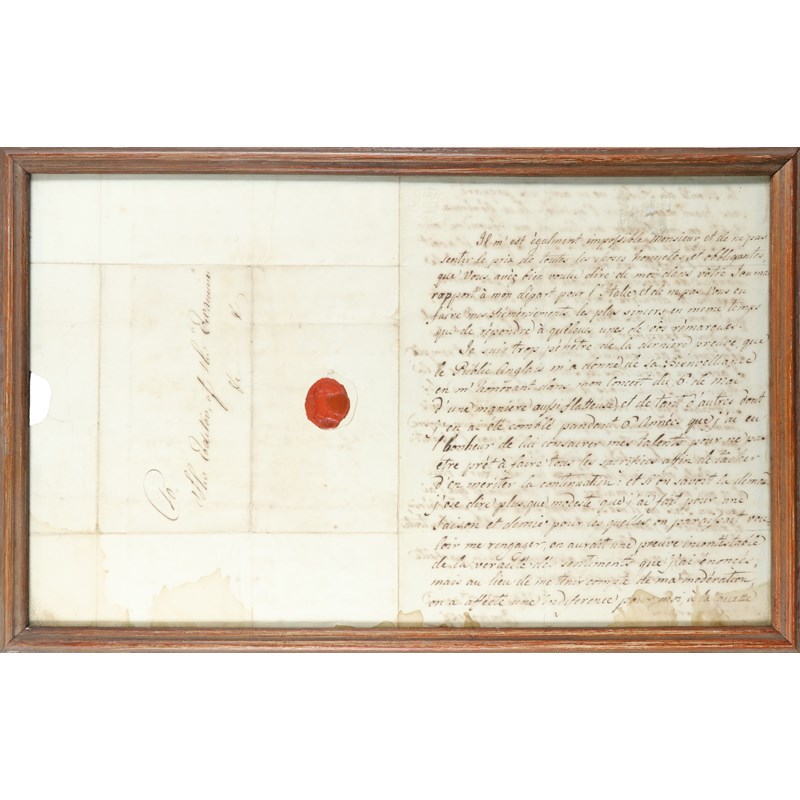 To
The Editor of the Examiner
&c &c
Il m'est également impossible Monsieur et de ne pas
sentir le prix de toutes les choses honnêtes et obligeantes
que Vous avez bien voulu dire de moi dans vôtre Journal
rapport à mon départ pour l'Italie, et de ne pas Vous en
faire mes remerciements les plus sinceres en meme temps
que de répondre à quelques unes de vos remarques.
Je suis trop pénétré de la derniere preuve que
le Public Anglais m'a donné de sa Bienveillance
en m'honorant dans mon Concert du 6 de mai
d'une maniére aussi flatteuse et de tant d'autres dont
j'en ai été comblé pendant 6 Années que j'ai eu
l'honneur de lui consacrer mes talents pour ne pas
être prêt à faire tous les sacrifices affin de tacher
d'en meriter la continuation: et si on savoit la demande
j'ose dire plus que modeste que j'ai fait pour une
saison et demie pour les quelles on paroissait vou
loir me rengager, on aurait une preuve incontestable
de la veracité des sentiments que j'ai énoncés,
mais au lieu de me tenir compte de ma modération,
on a affecté une indiference pour moi, à la quelle